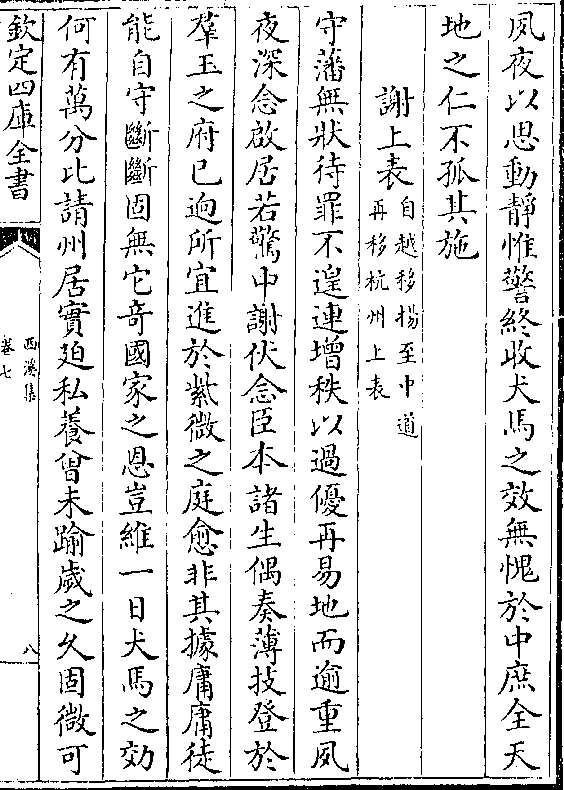 夙夜以思動靜惟警終收犬馬之效無愧於中庶全天
地之仁不孤其施
謝上表自越移揚至中道
再移杭州上表
守藩無狀待罪不遑連增秩以過優再易地而逾重夙
夜深念啟居若驚中謝伏念臣本諸生偶奏薄技登於
羣玉之府已逈所宜進於紫微之庭愈非其據庸庸徒
能自守斷斷固無它竒國家之恩豈維一日犬馬之効
何有萬分比請州居實廹私養曾未踰歲之久固微可
欽定四庫全書
西溪集
卷七
八